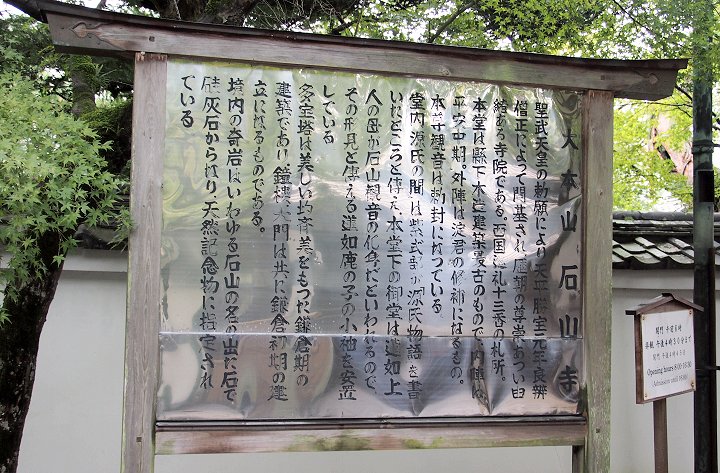 大本山 石山寺
聖武天皇の勅願により天平勝宝元年良辨
僧正によって開基され歴朝の尊崇あつい由
緒ある寺院である。西国巡礼十三番の札所。
本堂は縣下木造建築最古のもので内陣は
平安中期。外陣は淀君の修補になるもの。
本尊観音は勅封になっている
堂内 源氏の間は紫式部が源氏物語を書
いたところと傳え、本堂下の御堂は蓮如上
人の母が石山観音の化身だといわれるので、
その形見と傳える蓮如鹿の子の小袖を安置
している
多宝塔は美しい均斉美をもつた鎌倉期の
建築であり鐘楼、大門は共に鎌倉初期の建
立になるものである。
境内の奇岩はいわゆる石山の名の出た石で
硅灰石からなり天然記念物に指定され
ている
開門 午前8時
拝観 午後4時30分まで
閉門 午後4時45分
Opening hours 8:00-16:30
(Admission until 16:00)